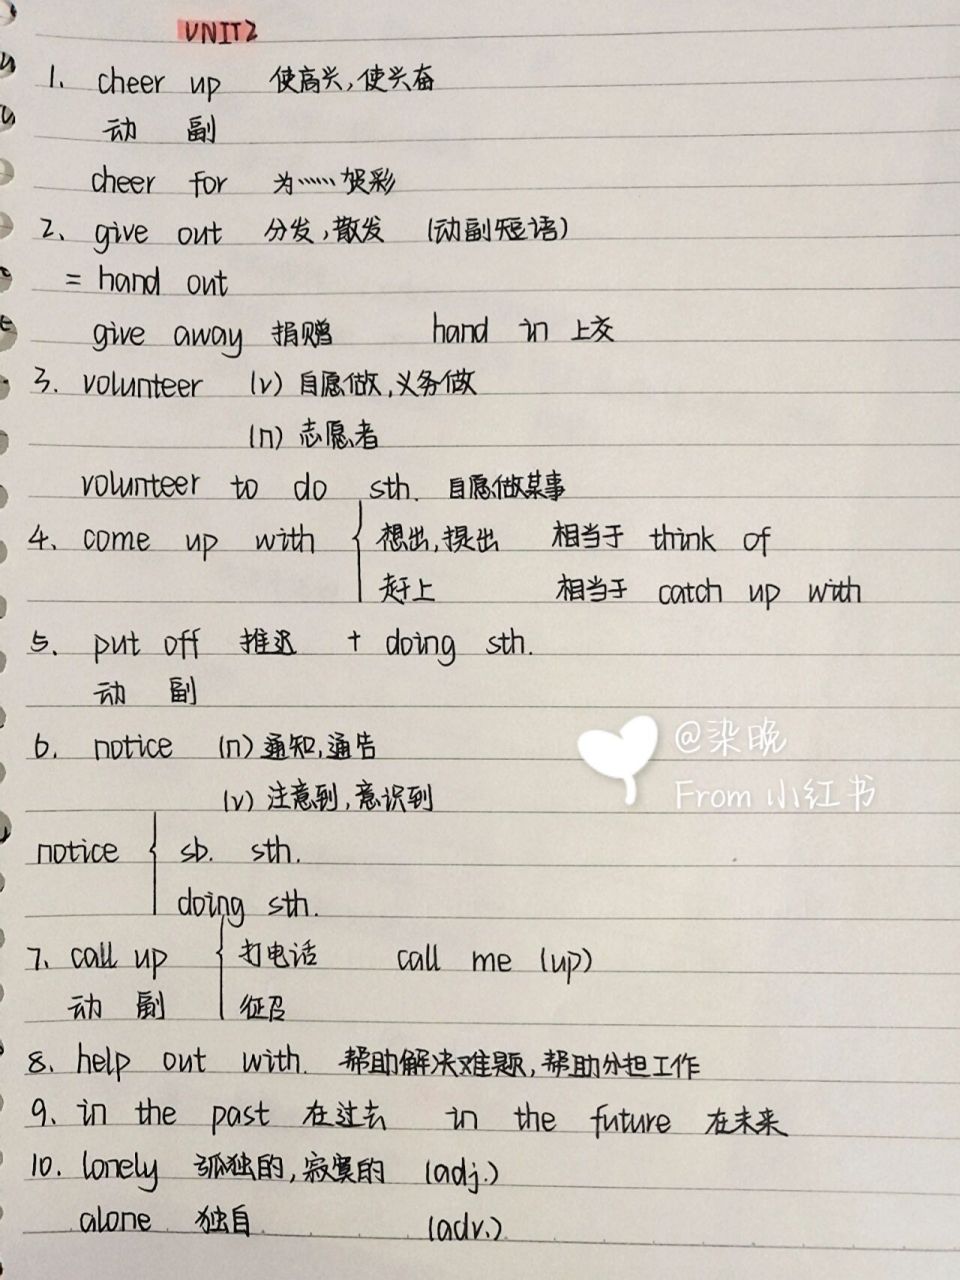 UNIT2
1. cheer up 使高兴,使兴奋
动 副
cheer for 为……贺彩
2、give out 分发,散发 (动副短语)
= hand out
give away 捐赠 hand in 上交
3. volunteer (v) 自愿做,义务做
(n) 志愿者
volunteer to do sth. 自愿做某事
4、come up with { 想出,提出 相当于 think of
赶上 相当于 catch up with
5. put off 推迟 + doing sth.
动 副
6. notice (n) 通知,通告
(v) 注意到,意识到
@染晚
From 小红书
notice { sb. sth.
doing sth.
7. call up { 打电话 call me (up)
动 副 征召
8. help out with. 帮助解决难题,帮助分担工作
9. in the past 在过去 in the future 在未来
10. lonely 孤独的,寂寞的 (adj.)
alone 独自 (adv.)